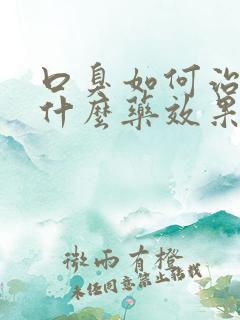 口臭如何治
什麼藥效果
微雨有橙
未任同意禁止転载